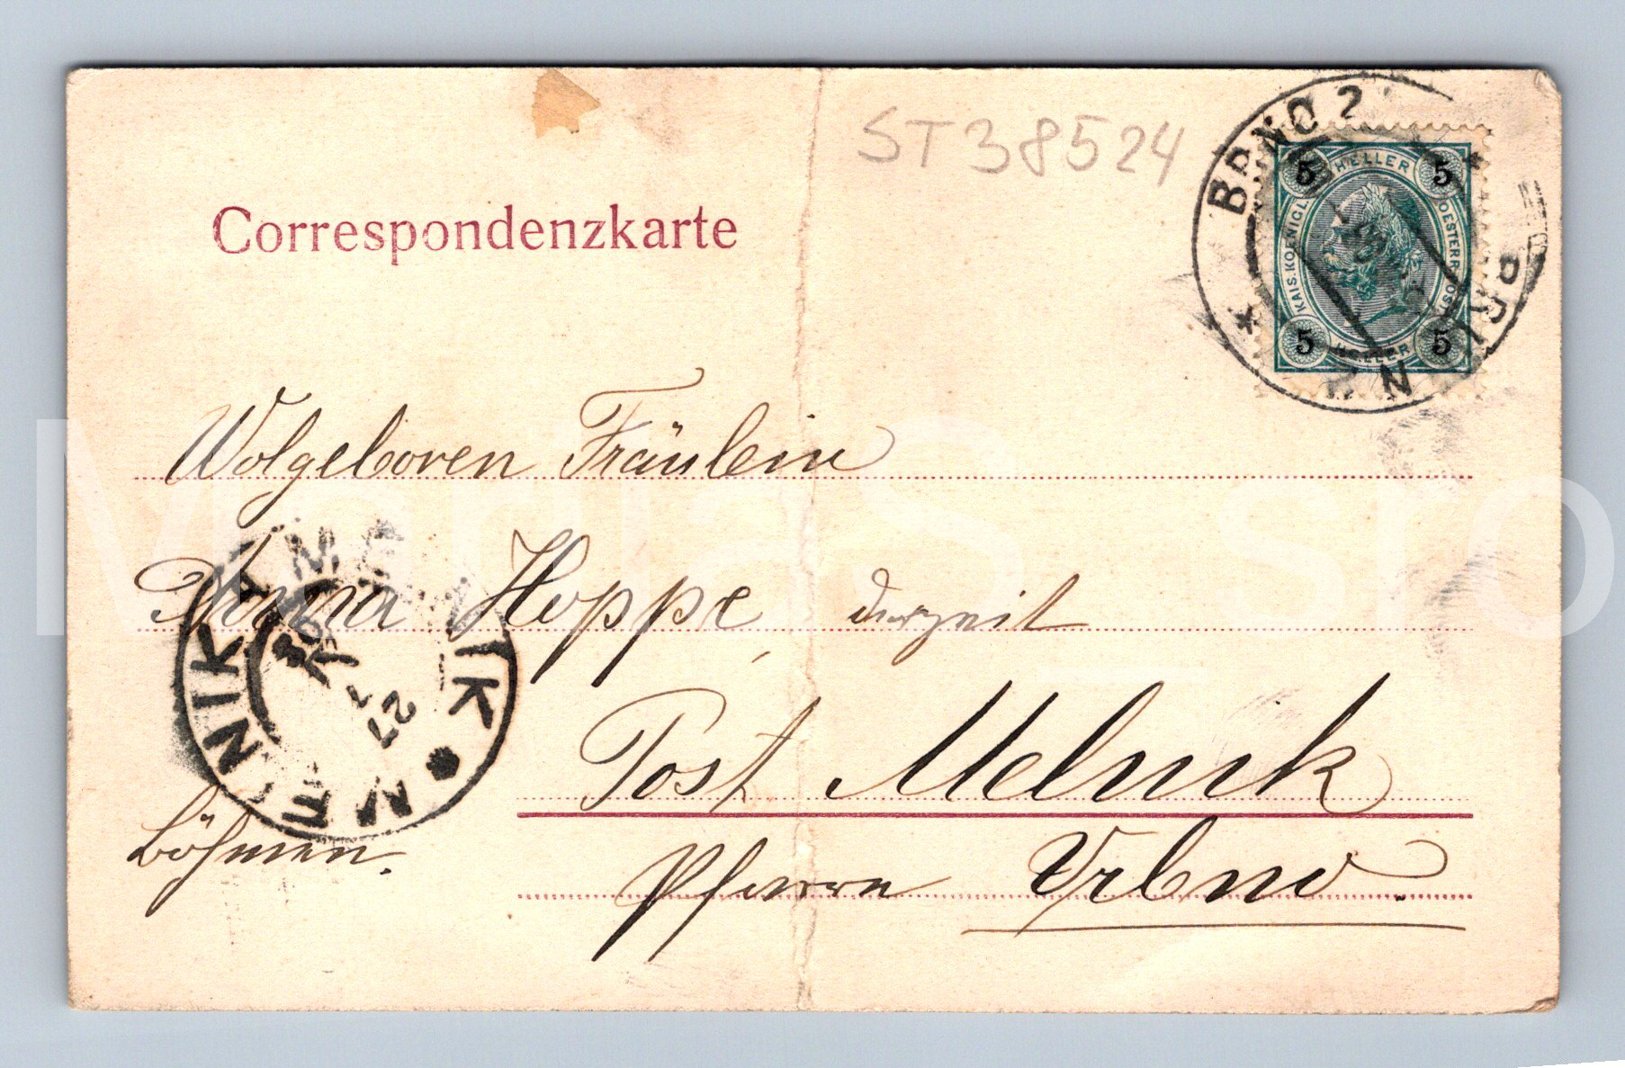 ST38524
BRNO 2
BRÜNN
5 HELLER 5
KAIS. KOENIGL. OESTERR. POST
5 HELLER 5
Correspondenzkarte
Wolgeboren Fräulein
Anna Hoppe, derzeit
Post Melnik
Pfarre Vrbno.
Böhmen.
MELNIK
MELNIK
27 7